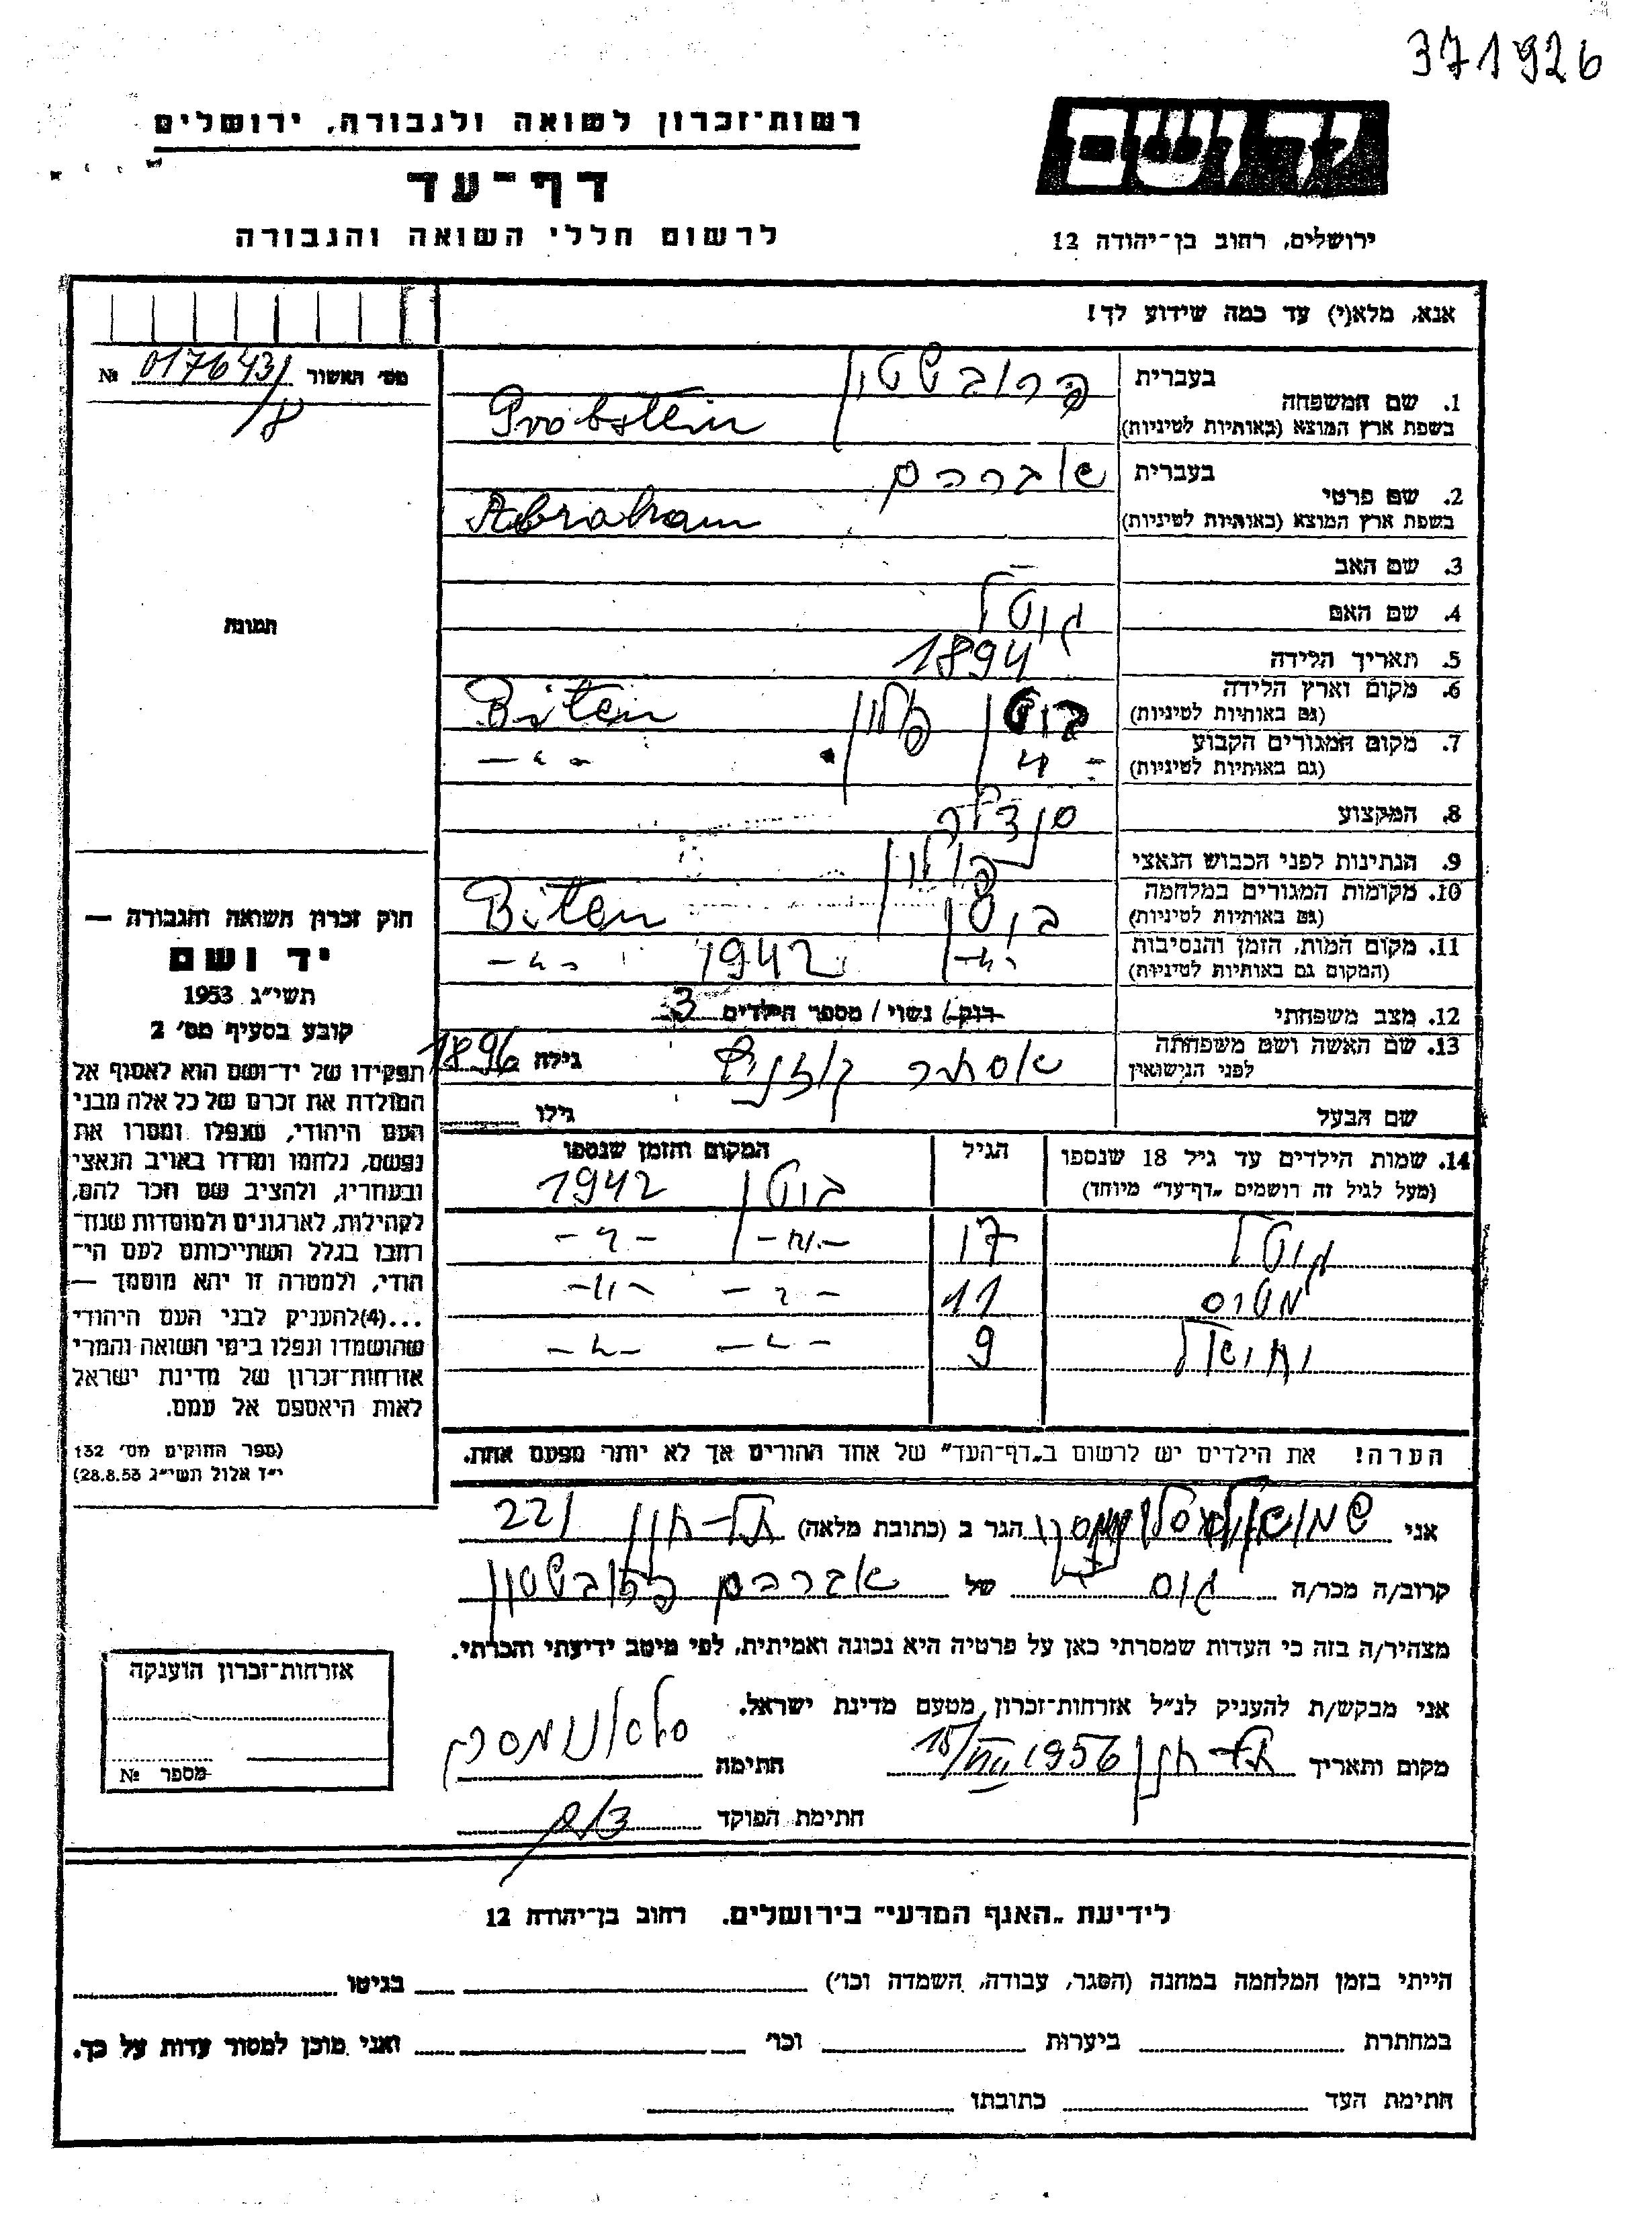 371926
רשות־זכרון לשואה ולגבורה, ירושלים
יד ושם
דף־עד
לרשום חללי השואה והגבורה
ירושלים, רחוב בן־יהודה 12
אנא, מלא(י) עד כמה שידוע לך!
מס׳ האשור 0176431 №
בעברית פרובשטין
1. שם המשפחה
בשפת ארץ המוצא (באותיות לטיניות) Probstein
בעברית אברהם
2. שם פרטי
בשפת ארץ המוצא (באותיות לטיניות) Abraham
3. שם האב –
4. שם האם גוטל
תמונה
5. תאריך הלידה 1894
6. מקום וארץ הלידה
(גם באותיות לטיניות) ביטן פולין Biten
7. מקום המגורים הקבוע
(גם באותיות לטיניות) -״- -״-
8. המקצוע סנדלר
9. הנתינות לפני הכבוש הנאצי פולין
10. מקומות המגורים במלחמה
(גם באותיות לטיניות) ביטן Biten
11. מקום המות, הזמן והנסיבות
(המקום גם באותיות לטיניות) -״- 1942 -״-
12. מצב משפחתי רוק / נשוי / מספר הילדים 3
13. שם האשה ושם משפחתה
לפני הנישואין אסתר גילה 1896
שם הבעל גילו
14. שמות הילדים עד גיל 18 שנספו
(מעל לגיל זה רושמים „דף־עד״ מיוחד)
הגיל
המקום והזמן שנספו
ביטן 1942
מוטל 17 -״- -״-
11 -״- -״-
9 -״- -״-
חוק זכרון השואה והגבורה —
יד ושם
תשי״ג 1953
קובע בסעיף מס׳ 2
תפקידו של יד־ושם הוא לאסוף אל
המולדת את זכרם של כל אלה מבני
העם היהודי, שנפלו ומסרו את
נפשם, נלחמו ומרדו באויב הנאצי
ובעוזריו, ולהציב שם וזכר להם,
לקהילות, לארגונים ולמוסדות שנח־
רבו בגלל השתייכותם לעם הי־
הודי, ולמטרה זו יהא מוסמך —
...(4)להעניק לבני העם היהודי
שהושמדו ונפלו בימי השואה והמרי
אזרחות־זכרון של מדינת ישראל
לאות היאספם אל עמם.
(ספר החוקים מס׳ 132
י״ז אלול תשי״ג 28.8.53)
הערה! את הילדים יש לרשום ב„דף־העד״ של אחד ההורים אך לא יותר מפעם אחת.
אני הגר ב (כתובת מלאה) 221
קרוב/ה מכר/ה גיס של אברהם פרובשטין
מצהיר/ה בזה כי העדות שמסרתי כאן על פרטיה היא נכונה ואמיתית, לפי מיטב ידיעתי והכרתי.
אני מבקש/ת להעניק לנ״ל אזרחות־זכרון מטעם מדינת ישראל.
מקום ותאריך 15/VIII 1956 חתימה
חתימת הפוקד
אזרחות־זכרון הוענקה
מספר №
לידיעת „האגף המדעי״ בירושלים. רחוב בן־יהודה 12
הייתי בזמן המלחמה במחנה (הסגר, עבודה, השמדה וכו׳) בגיטו
במחתרת ביערות וכו׳ ואני מוכן למסור עדות על כך.
חתימת העד כתובתו